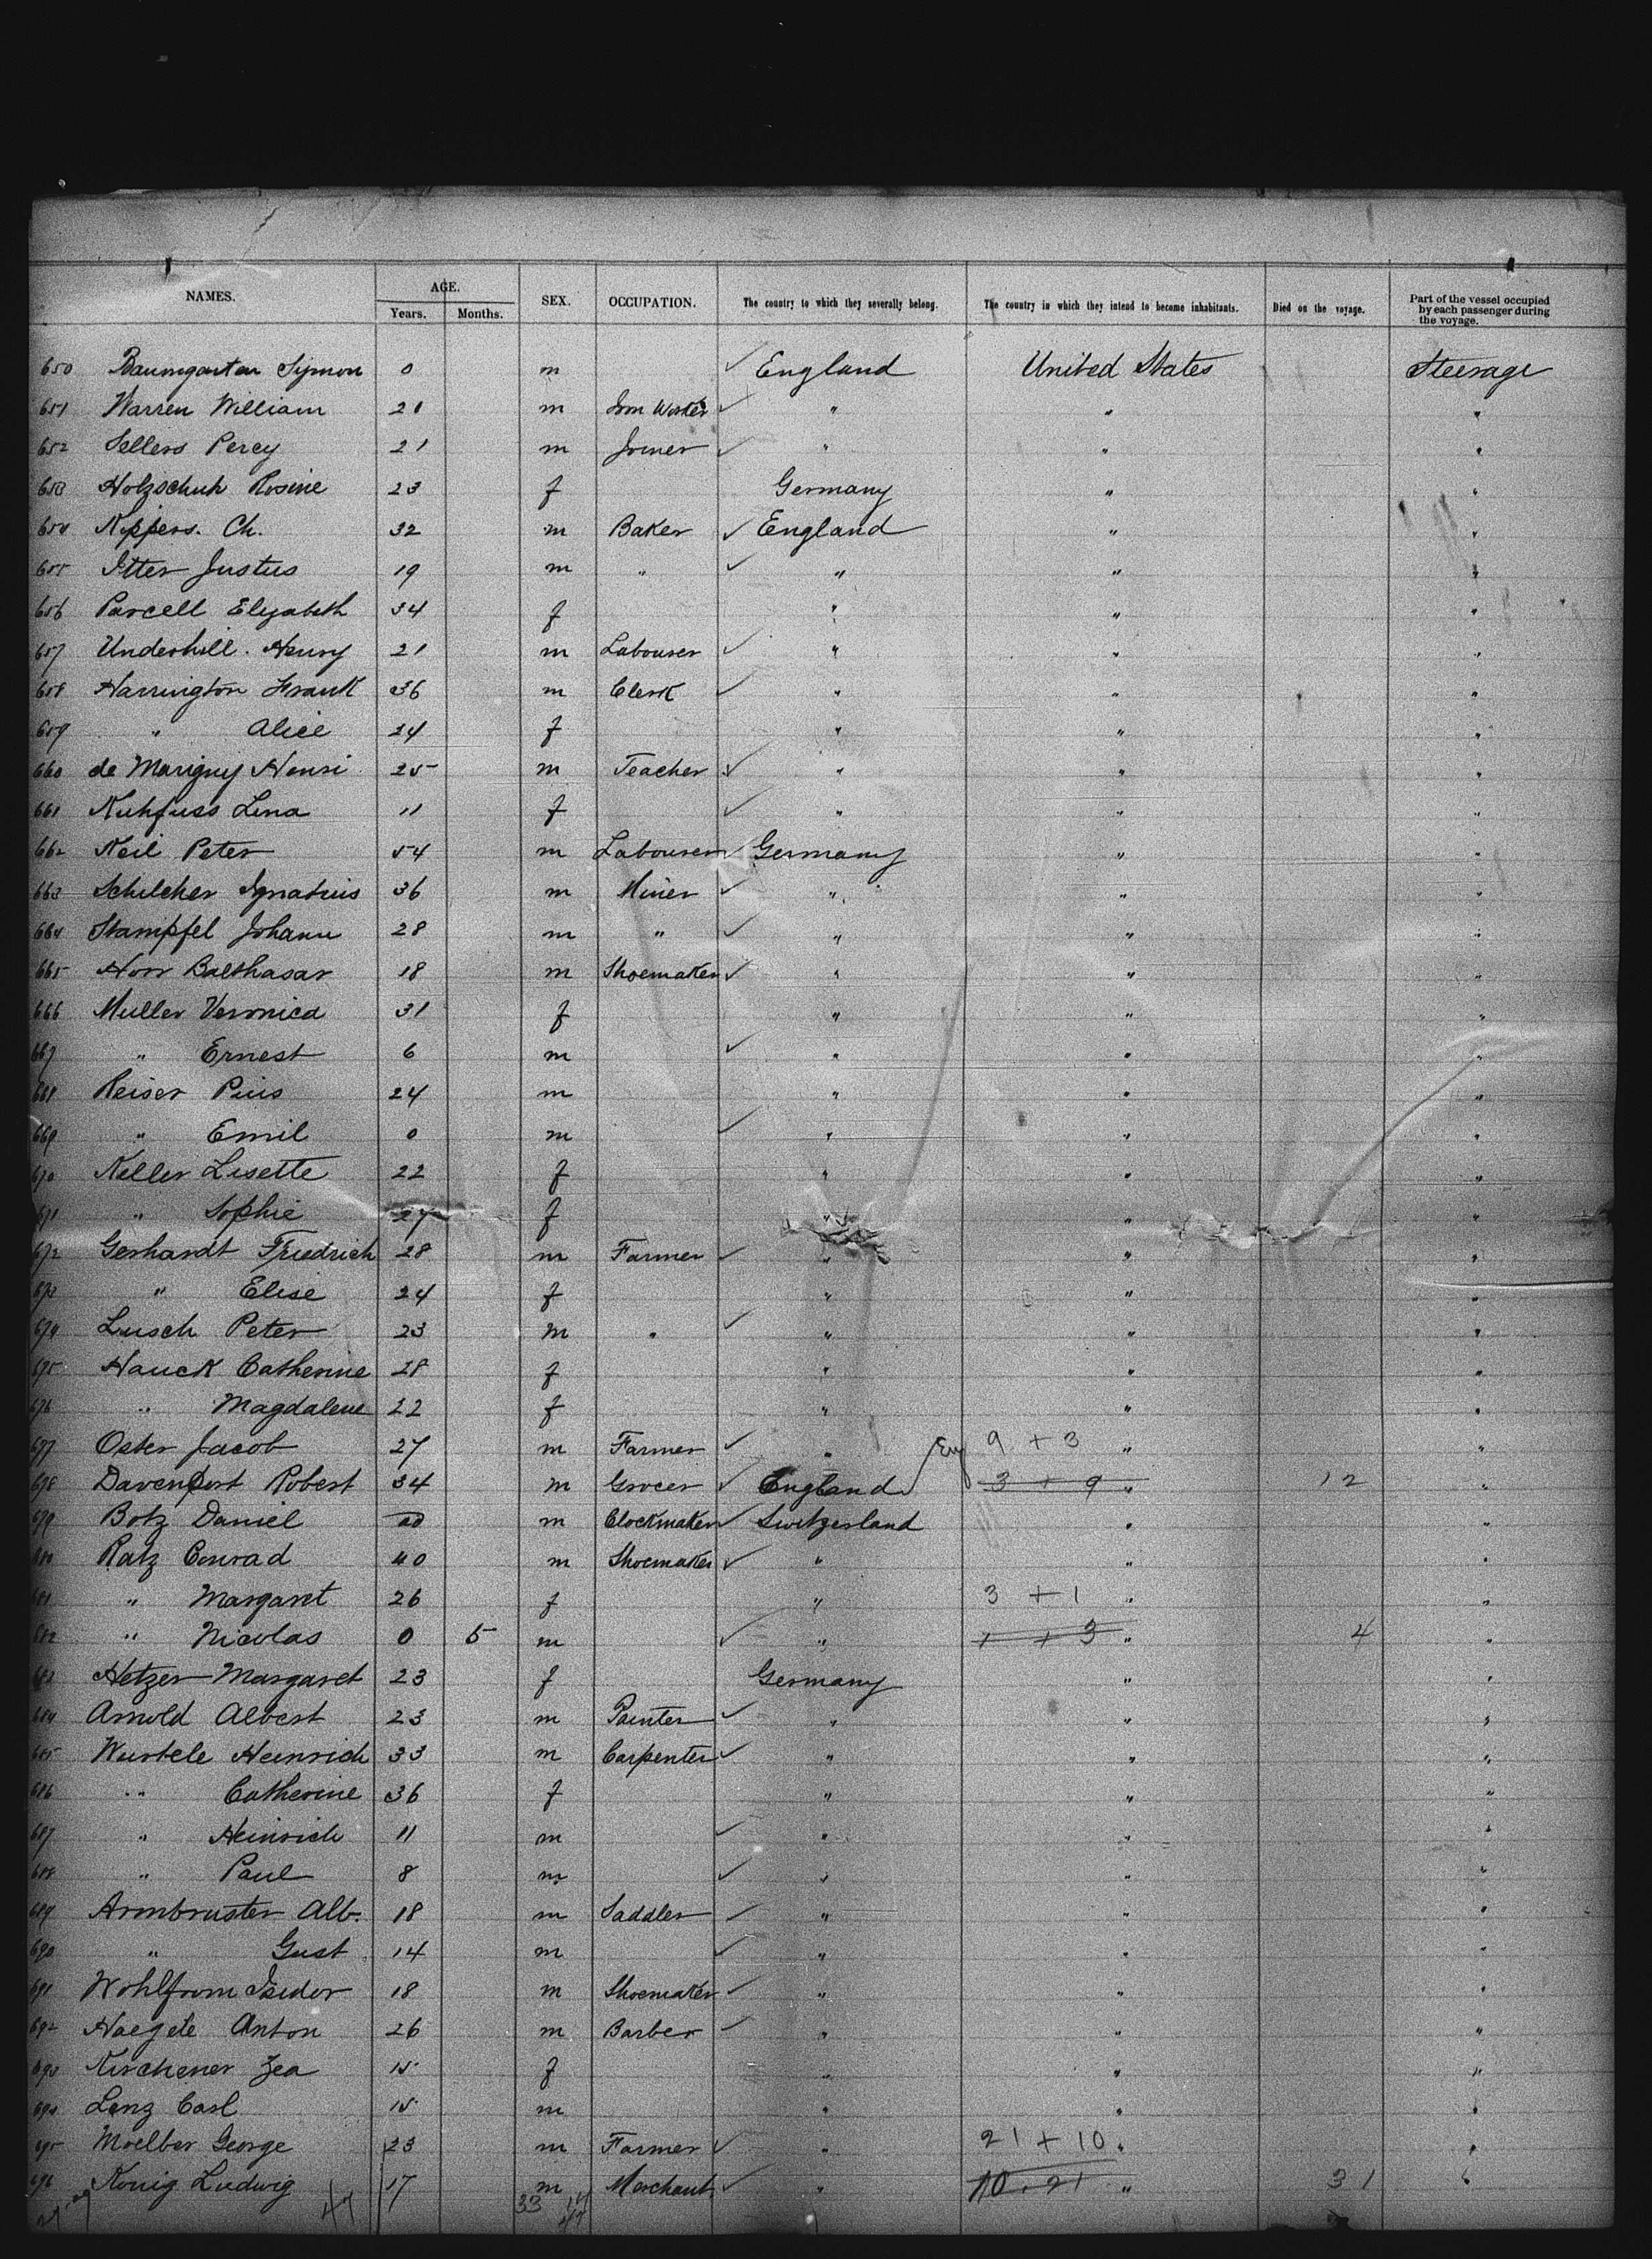 NAMES. AGE. SEX. OCCUPATION. The country to which they severally belong. The country in which they intend to become inhabitants. Died on the voyage. Part of the vessel occupied by each passenger during the voyage.
Years. Months.
650 Baumgarten Symon 0 m ✓ England United States Steerage
651 Warren William 20 m Iron Worker ✓ " " "
652 Sellers Percy 21 m Joiner ✓ " " "
653 Holzschuh Rosine 23 f Germany " "
654 Kippers. Ch. 32 m Baker ✓ England " "
655 Itter Justus 19 m " ✓ " " "
656 Parcell Elizabeth 34 f " " "
657 Underhill. Henry 21 m Labourer ✓ " " "
658 Harrington Frank 36 m Clerk ✓ " " "
659 " Alice 24 f " " "
660 de Marigny Henri 25 m Teacher ✓ " " "
661 Kuhfuss Lina 11 f ✓ " " "
662 Keil Peter 54 m Labourer ✓ Germany " "
663 Schilcher Ignatius 36 m Miner ✓ " " "
664 Stampfel Johann 28 m " ✓ " " "
665 Horr Balthasar 18 m Shoemaker ✓ " " "
666 Muller Veronica 31 f " " "
667 " Ernest 6 m ✓ " " "
668 Reiser Pius 24 m " " "
669 " Emil 0 m ✓ " " "
670 Keller Lisette 22 f " " "
671 " Sophie 27 f " " "
672 Gerhardt Friedrich 28 m Farmer ✓ " " "
673 " Elise 24 f " " "
674 Lusch Peter 23 m " ✓ " " "
675 Hauck Catherine 28 f " " "
676 " Magdalene 22 f " " "
677 Oster Jacob 27 m Farmer ✓ " Eng 9 + 3 " "
678 Davenport Robert 34 m Grocer ✓ England 3 + 9 " 12 "
679 Botz Daniel 20 m Clockmaker ✓ Switzerland " "
680 Ratz Conrad 40 m Shoemaker ✓ " " "
681 " Margaret 26 f " 3 + 1 " "
682 " Nicolas 0 5 m ✓ " 1 + 3 " 4 "
683 Hetzer Margaret 23 f Germany " "
684 Arnold Albert 23 m Painter ✓ " " "
685 Wurtele Heinrich 33 m Carpenter ✓ " " "
686 " Catherine 36 f " " "
687 " Heinrich 11 m ✓ " " "
688 " Paul 8 m ✓ " " "
689 Armbruster Alb. 18 m Saddler ✓ " " "
690 " Gust 14 m ✓ " " "
691 Wohlfrom Isidor 18 m Shoemaker ✓ " " "
692 Haegele Anton 26 m Barber ✓ " " "
693 Kirchener Zea 15 f " " "
694 Lenz Carl 15 m " " "
695 Moelber George 23 m Farmer ✓ " 21 + 10 " "
696 Konig Ludwig 17 m Merchant ✓ " 10 . 21 " 31 "
47 33 14
47